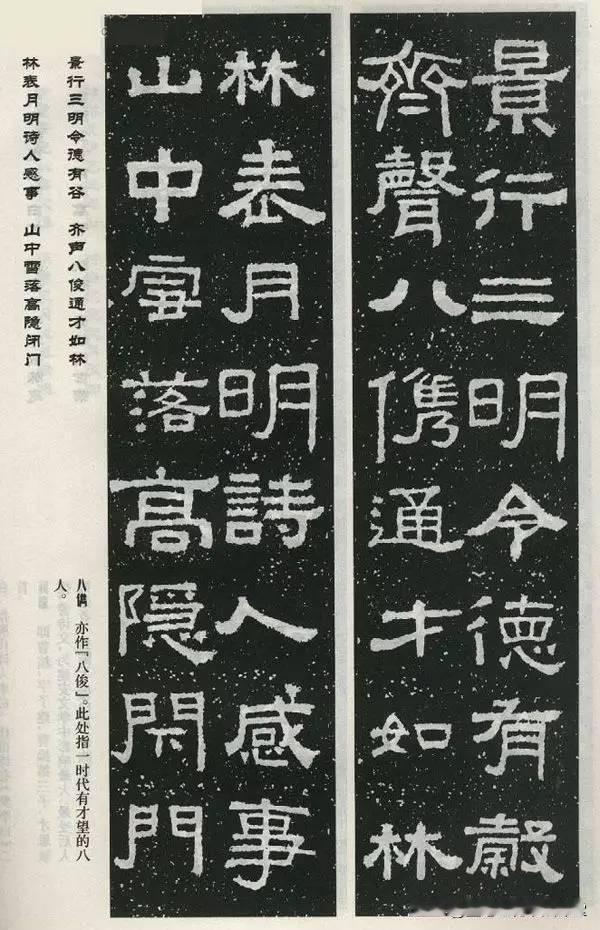 景行三明令德有穀
齊聲八儁通才如林
林表月明詩人感事
山中雪落高隱閇門
景行三明令德有谷 齐声八俊通才如林
林表月明诗人感事 山中雪落高隐闭门
八儁 亦作「八俊」。此处指一时代有才望的八
人。